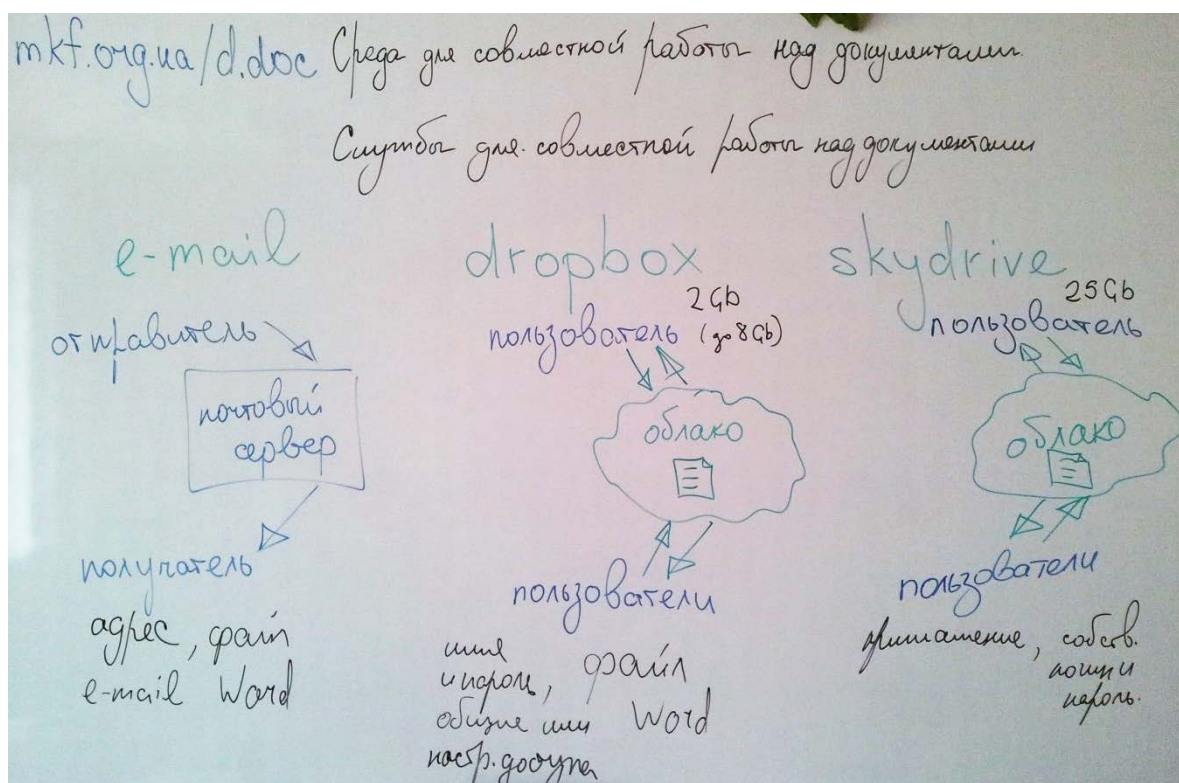 mkf.org.ua/d.doc Среда для совместной работы над документами.
Службы для совместной работы над документами
e-mail
отправитель
почтовый
сервер
получатель
адрес, файл
e-mail Word
dropbox
2Gb
пользователь (до 8Gb)
облако
пользователи
имя
и пароль, файл
общие или Word
настр. доступа
skydrive
25Gb
пользователь
облако
пользователи
приглашение, собств.
логин и
пароль.